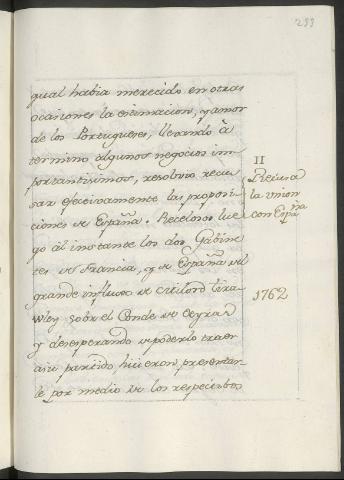 293
qual habia merecido en otras
ocasiones la estimacion, y amor
de los Portugueses, llevando à
termino algunos negocios im-
portantisimos, resolvio recu-
sar efectivamente las proposi-
ciones de España. Recelosos lue-
go al instante los dos Gabine-
tes de Francia, y de España del
grande influxo de Milord Tira-
wley sobre el Conde de Oeyras
y desesperando de poderlo traer
a su partido, hicieron presentar-
le por medio de los respectivos
II
Recusa
la union
con España
1762